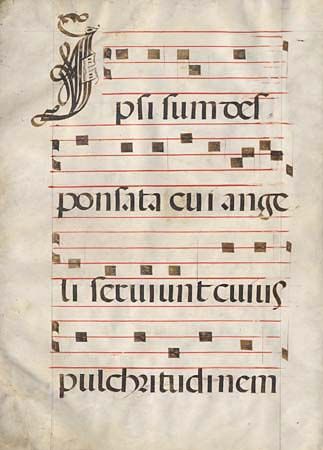 Ipsi sum des
ponsata cui ange
li serviunt cuius
pulchritudinem